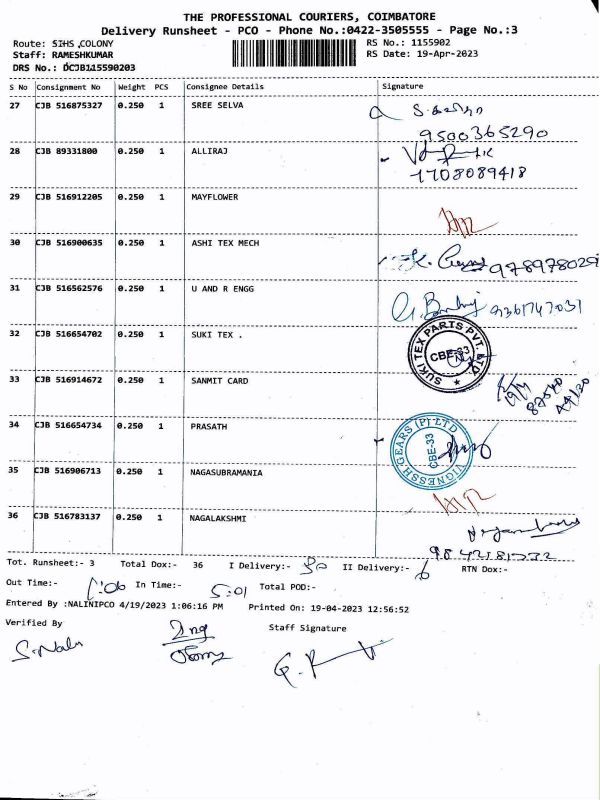 THE PROFESSIONAL COURIERS, COIMBATORE
Delivery Runsheet - PCO - Phone No.:0422-3505555 - Page No.:3
Route: SIHS ,COLONY RS No.: 1155902
Staff: RAMESHKUMAR RS Date: 19-Apr-2023
DRS No.: DCJB115590203
S No Consignment No Weight PCS Consignee Details Signature
27 CJB 516875327 0.250 1 SREE SELVA
9500365290
28 CJB 89331800 0.250 1 ALLIRAJ
1708089418
29 CJB 516912205 0.250 1 MAYFLOWER
30 CJB 516900635 0.250 1 ASHI TEX MECH
978978029
31 CJB 516562576 0.250 1 U AND R ENGG
9361747031
32 CJB 516654702 0.250 1 SUKI TEX .
SUKI TEX PARTS PVT. LTD.
CBE-33
33 CJB 516914672 0.250 1 SANMIT CARD
34 CJB 516654734 0.250 1 PRASATH
VIGNESSH GEARS (P) LTD
CBE-33
35 CJB 516906713 0.250 1 NAGASUBRAMANIA
36 CJB 516783137 0.250 1 NAGALAKSHMI
Tot. Runsheet:- 3 Total Dox:- 36 I Delivery:- 30 II Delivery:- 6 RTN Dox:-
Out Time:- 1:06 In Time:- 5:01 Total POD:-
Entered By :NALINIPCO 4/19/2023 1:06:16 PM Printed On: 19-04-2023 12:56:52
Verified By Staff Signature
S.Nalini